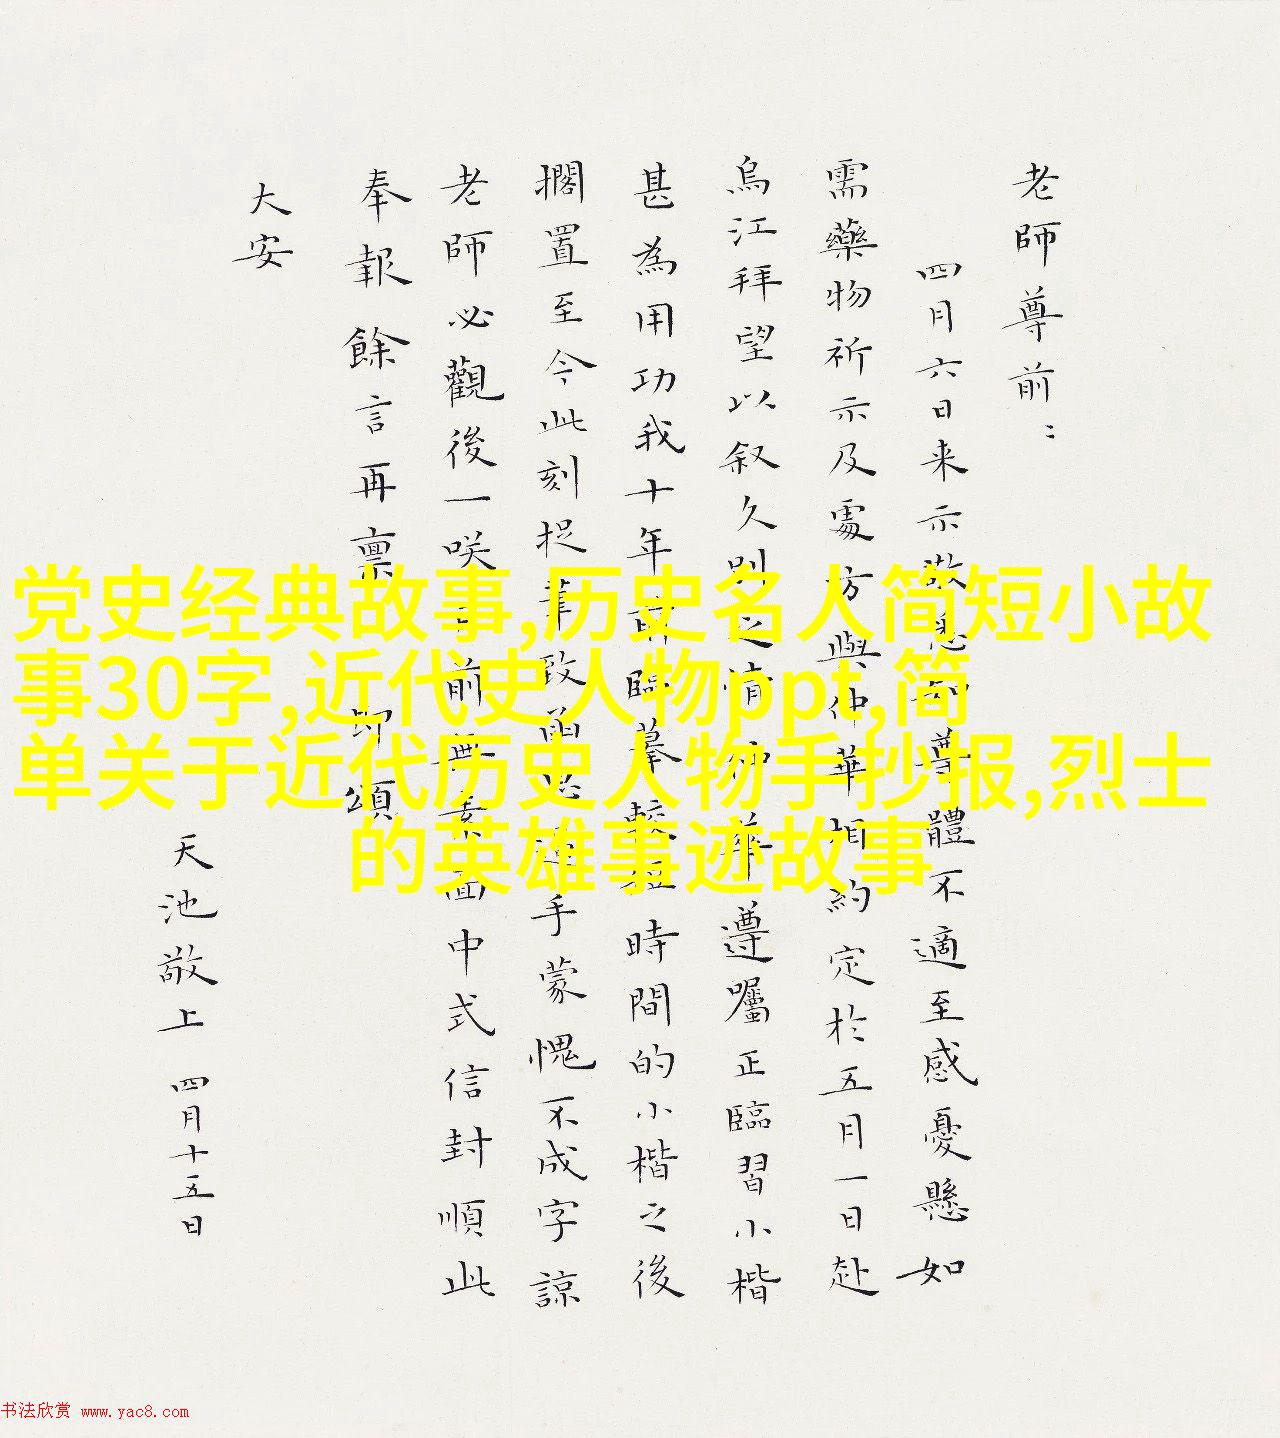 老師尊前：
四月六日来示敬悉知尊體不適至感憂懸如
需藥物祈示及處方與仲華相約定於五月一日赴
烏江拜望以叙久别之情仲華遵囑正臨習小楷
甚為用功我十年臨摹較短時間的小楷之後
擱置至今此刻捉筆致函手蒙愧不成字諒
老師必觀後一咲前無素面中式信封順此
奉報餘言再禀即頌
大安
天池敬上 四月十五日
党史经典故事,历史名人简短小故
事30字,近代史人物ppt,简
单关于近代历史人物手抄报,烈士
的英雄事迹故事
书法欣赏 www.yac8.com